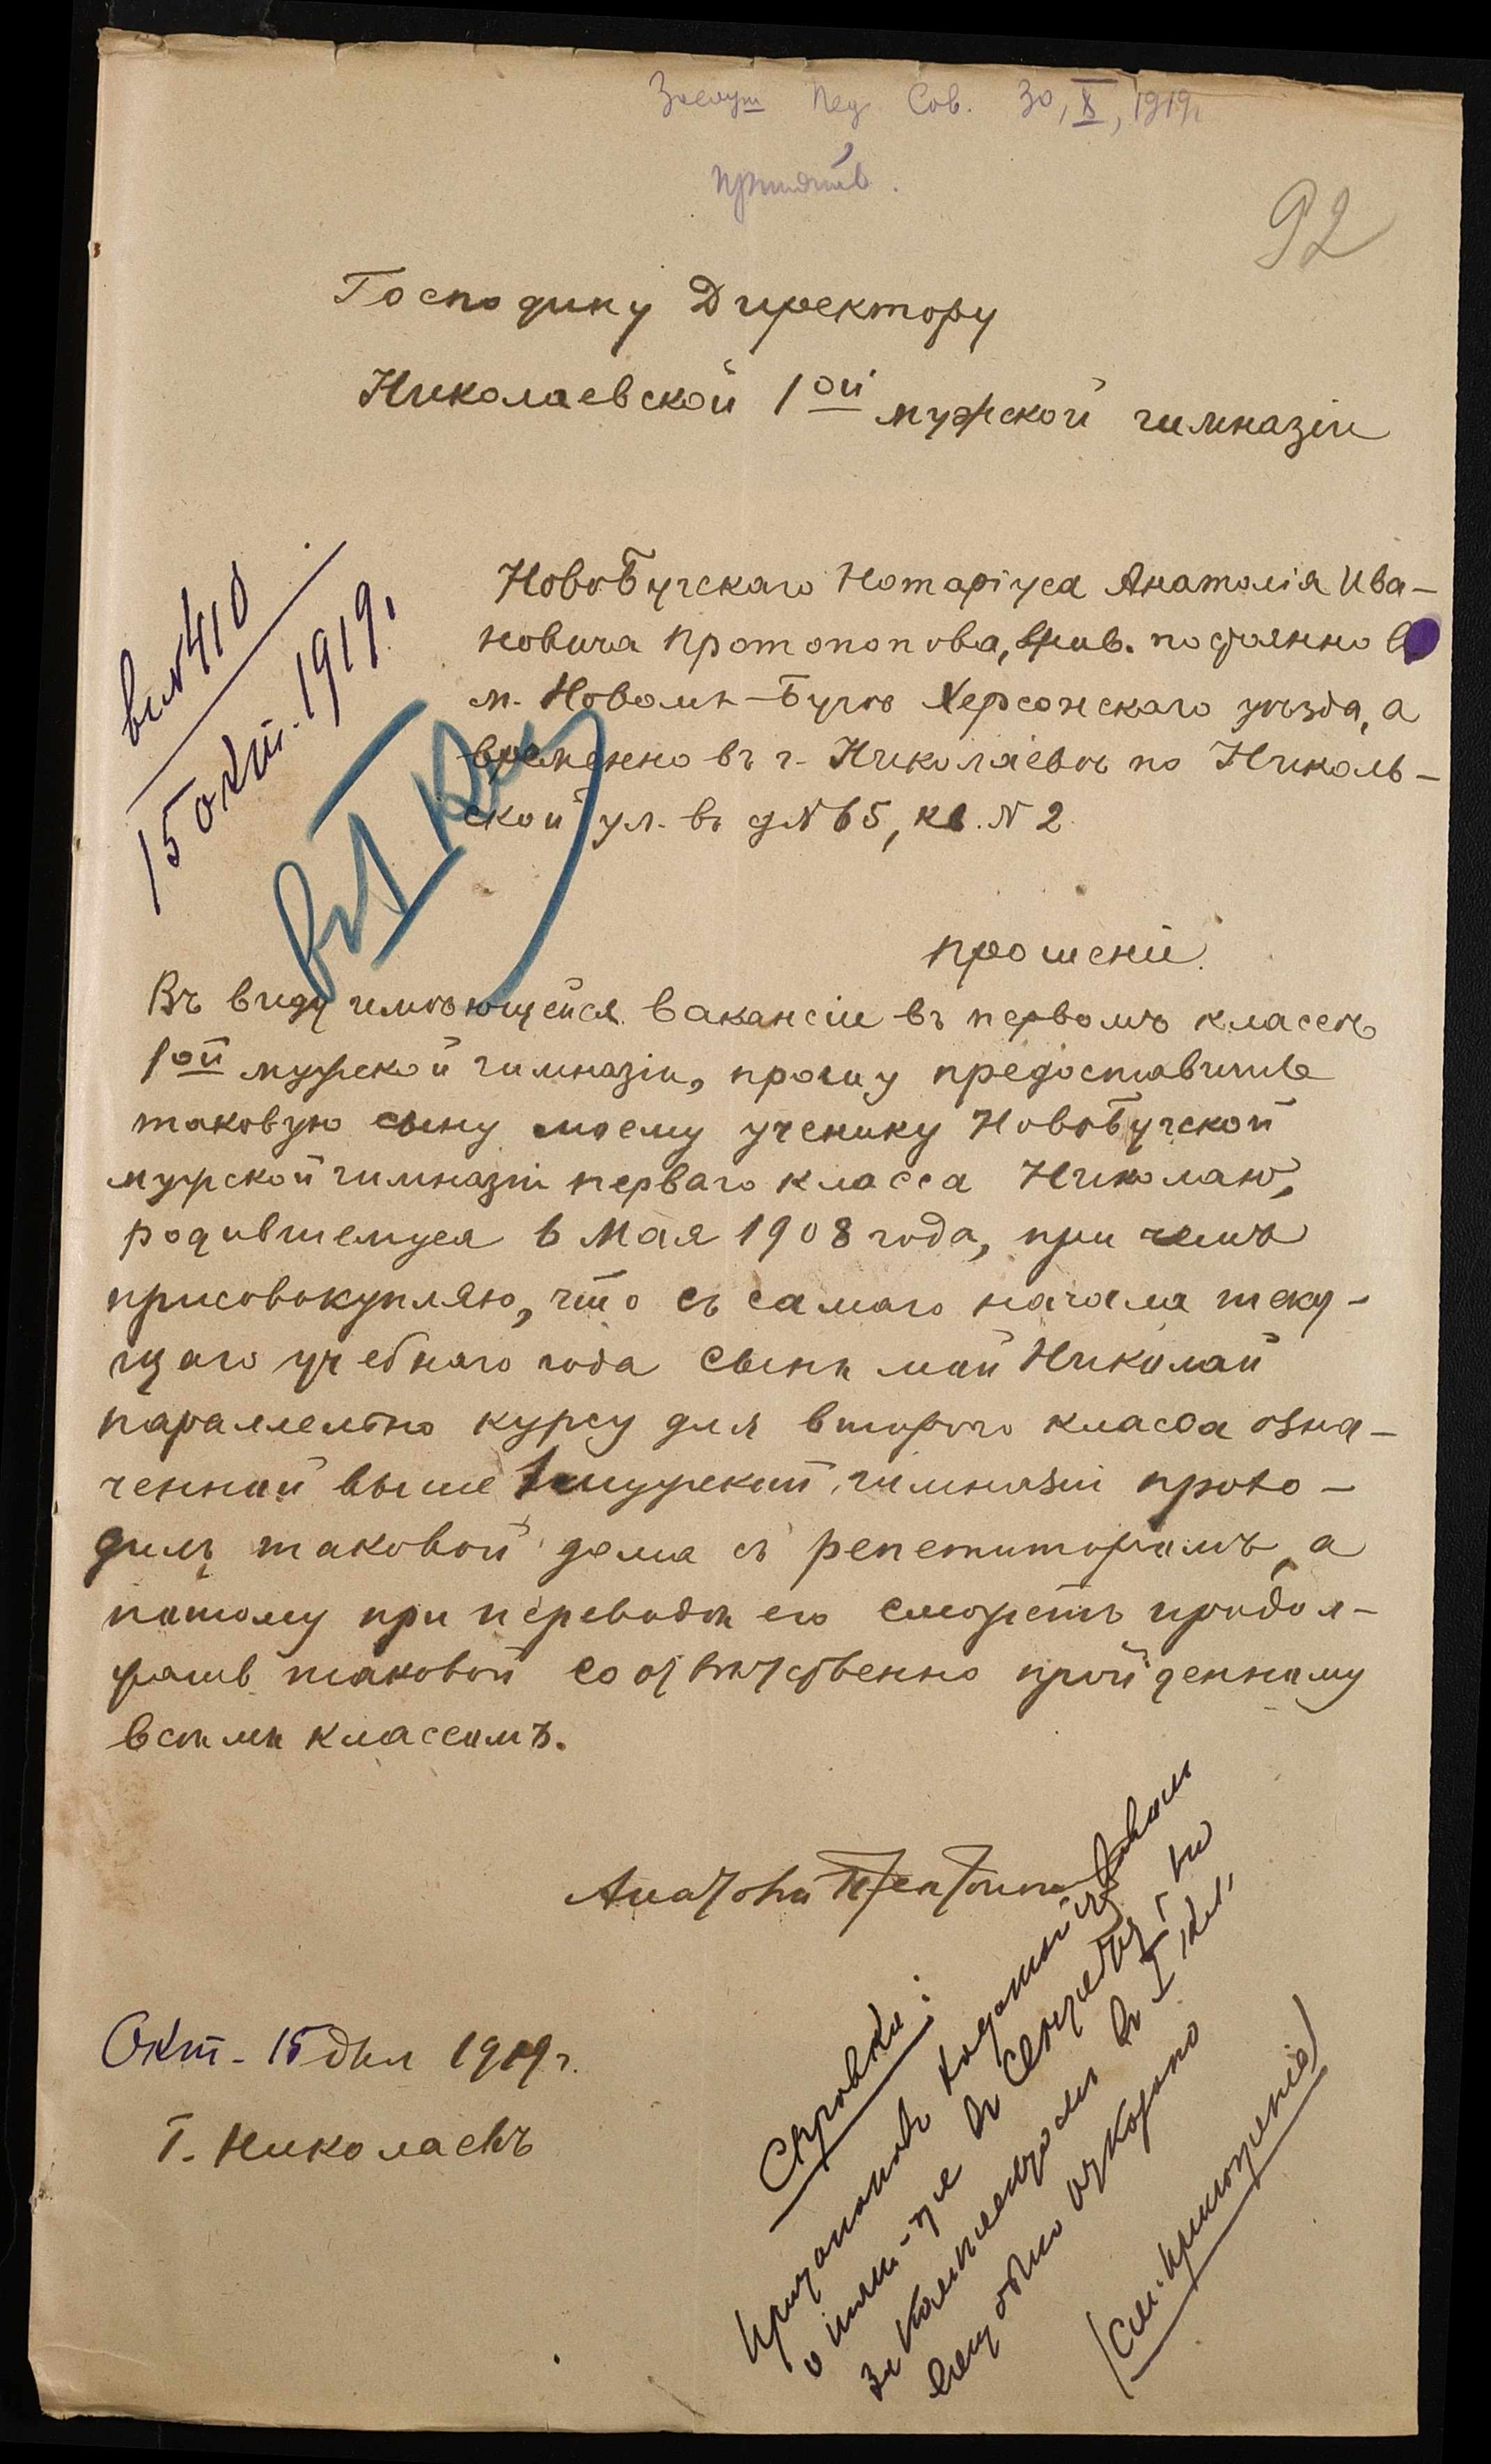 Пед. Сов. 30, X, 1919г
принять.
92
Господину Директору
Николаевской 1ой мужской гимназіи
вх №410
15 окт. 1919г
въ I кл
НовоБугскаго Нотаріуса Анатолія Ива-
новича Протопопова, жив. постоянно въ
м. Новомъ-Бугѣ Херсонскаго уѣзда, а
временно въ г. Николаевѣ по Николь-
ской ул. въ д №65, кв. №2
прошеніе.
Въ виду имѣющейся вакансіи въ первомъ классѣ
1ой мужской гимназіи, прошу предоставить
таковую сыну моему ученику НовоБугской
мужской гимназіи перваго класса Николаю,
родившемуся 6 Мая 1908 года, при чемъ
присовокупляю, что съ самаго начала теку-
щаго учебнаго года сынъ мой Николай
параллельно курсу для второго класса озна-
ченной выше мужской гимназіи прохо-
дилъ таковой дома съ репетиторомъ, а
потому при переводѣ его сможетъ продол-
жать таковой соотвѣтственно пройденному
всѣмъ классомъ.
Анатолій Протопоповъ
Окт. 15 дня 1919 г.
Г. Николаевъ
Справка:
въ Сентябрѣ
за комплектомъ въ I кл.
ему было отказано
/см. приложеніе/